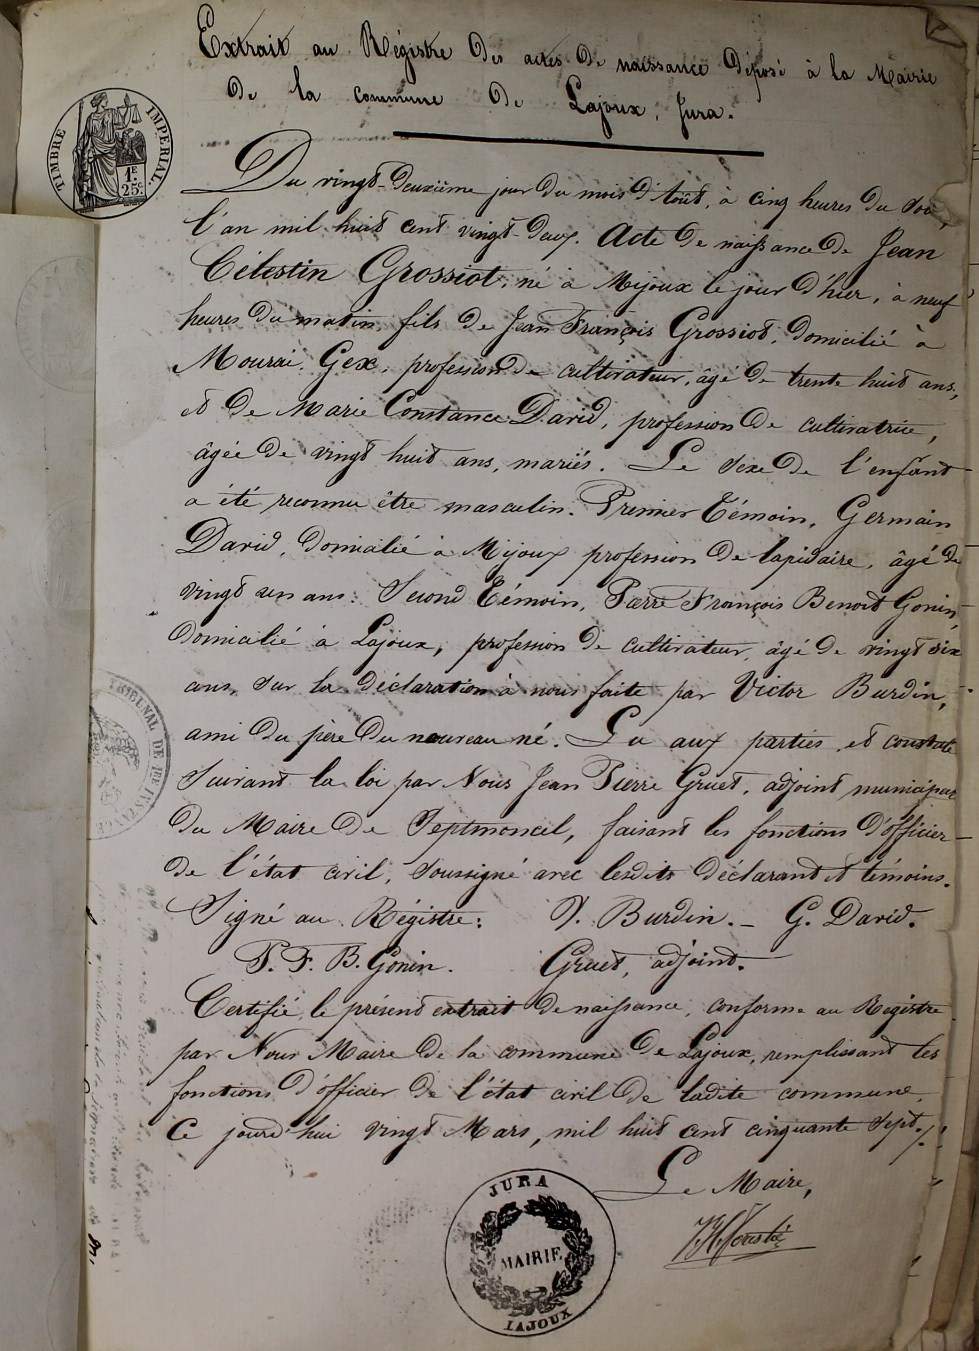 Extrait au Régistre des actes de naissance déposé à la Mairie
de la commune de Lajoux, Jura.
TIMBRE IMPERIAL
1F
25c.
Du vingt-deuxième jour du mois d'Août, à cinq heures du soir,
l'an mil huit cent vingt-deux. Acte de naissance de Jean
Célestin Grossiot, né à Mijoux le jour d'hier, à neuf
heures du matin, fils de Jean François Grossiot, domicilié à
Mourai, Gex, profession de cultivateur, âgé de trente huit ans,
et de Marie Constance David, profession de cultivatrice,
âgée de vingt huit ans, mariés. Le sexe de l'enfant
a été reconnu être masculin. Premier Témoin, Germain
David, domicilié à Mijoux profession de lapidaire, âgé de
vingt un ans: Second Témoin, Pierre François Benoit Gonin,
domicilié à Lajoux, profession de cultivateur, âgé de vingt six
ans, sur la déclaration à nous faite par Victor Burdin,
ami du père du nouveau né. Lu aux parties, et constaté
suivant la loi par Nous Jean Pierre Gruet, adjoint municipal
du Maire de Septmoncel, faisant les fonctions d'officier
de l'état civil, soussigné avec lesdits déclarant et témoins.
Signé au Régistre: V. Burdin. - G. David.
P. F. B. Gonin. Gruet, adjoint.
Certifié le présent extrait de naissance, conforme au Régistre
par Nous Maire de la commune de Lajoux, remplissant les
fonctions d'officier de l'état civil de ladite commune.
Ce jourd'hui vingt Mars, mil huit cent cinquante sept./.
Le Maire,
JURA
MAIRIE
LAJOUX
TRIBUNAL DE 1RE INSTANCE